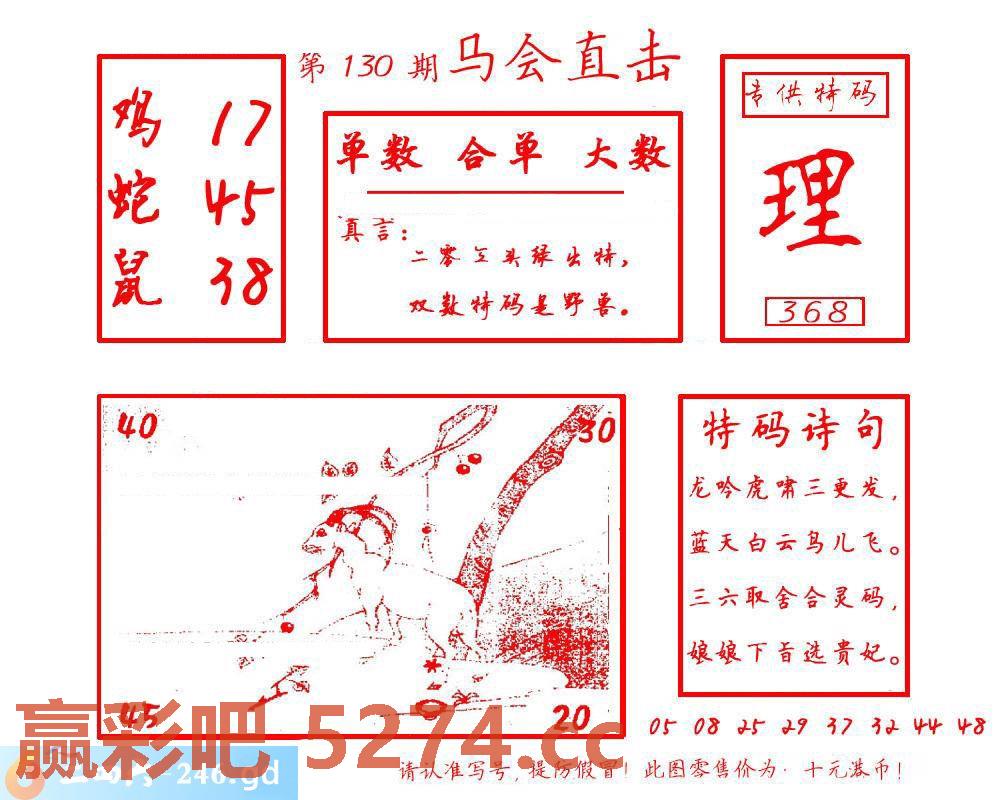 第 130 期 马会直击
鸡 17
蛇 45
鼠 38
单数 合单 大数
真言：
二零三头绿出特，
双数特码是野兽。
专供特码
理
368
40
30
45
20
特码诗句
龙吟虎啸三更发，
蓝天白云鸟儿飞。
三六取舍合灵码，
娘娘下旨选贵妃。
05 08 25 29 37 32 44 48
赢彩吧 5274.cc
-246.gd
请认准写号，提防假冒！此图零售价为·十元港币！